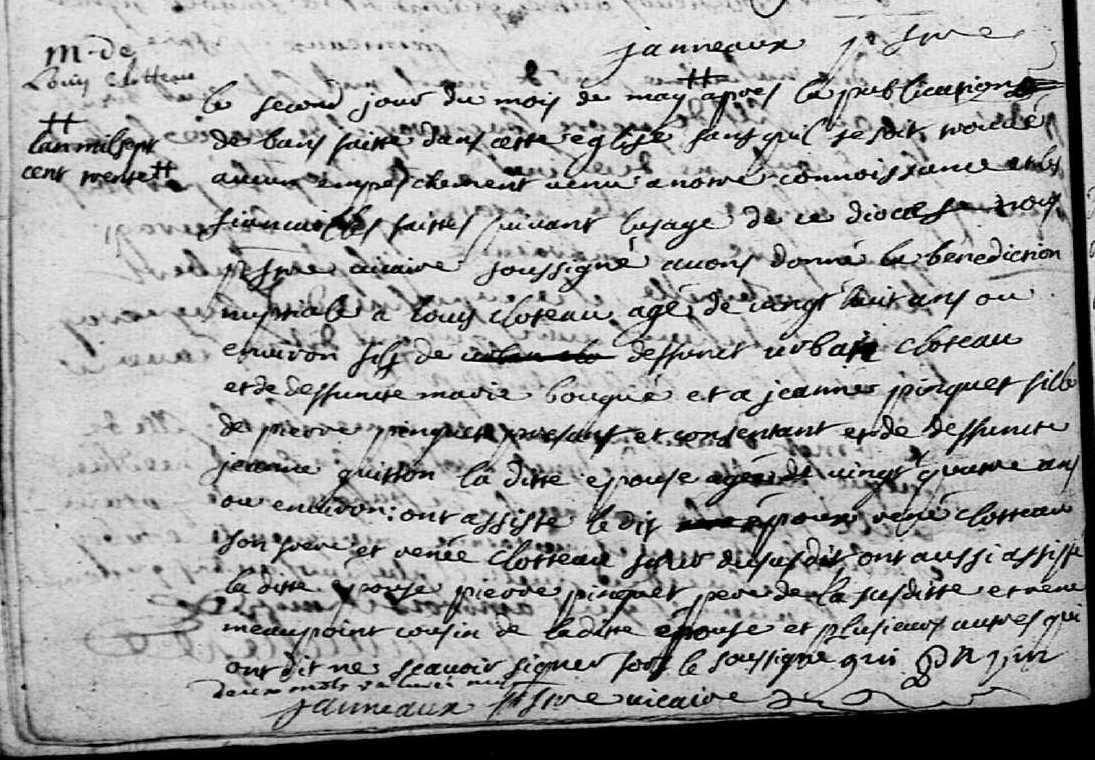 janneaux prstre
m. de
Louis Clotteau
╫ lan mil sept
cent trente ╫
le second jour du mois de may ╫ apres la publication
de bans faitte dans cette eglise sans qu'il se soit trouvé
aucun empeschement venu a notre connoissance et les
fiancailles faittes suivant lusage de ce diocese nous
prstre vicaire soussigné avons donné la benediction
nuptiale a louis cloteau agé de vingt huit ans ou
environ fils de deffunct urbain cloteau
et de deffuncte marie bouqué et a jeanne pinquet fille
de pierre pinquet presant et consentant et de deffuncte
jeanne guitton la ditte epouse agée de vingt quatre ans
ou environ: ont assisté le dit époux rené clotteau
son frere et renée Clotteau sœur du susdit ont aussi assisté
la ditte epouse pierre pinquet pere de la susditte et rené
meaupoint cousin de laditte épouse et plusieurs autres qui
ont dit ne scavoir signer fors le soussigné
deux mots raturés nuls
janneaux prstre vicaire